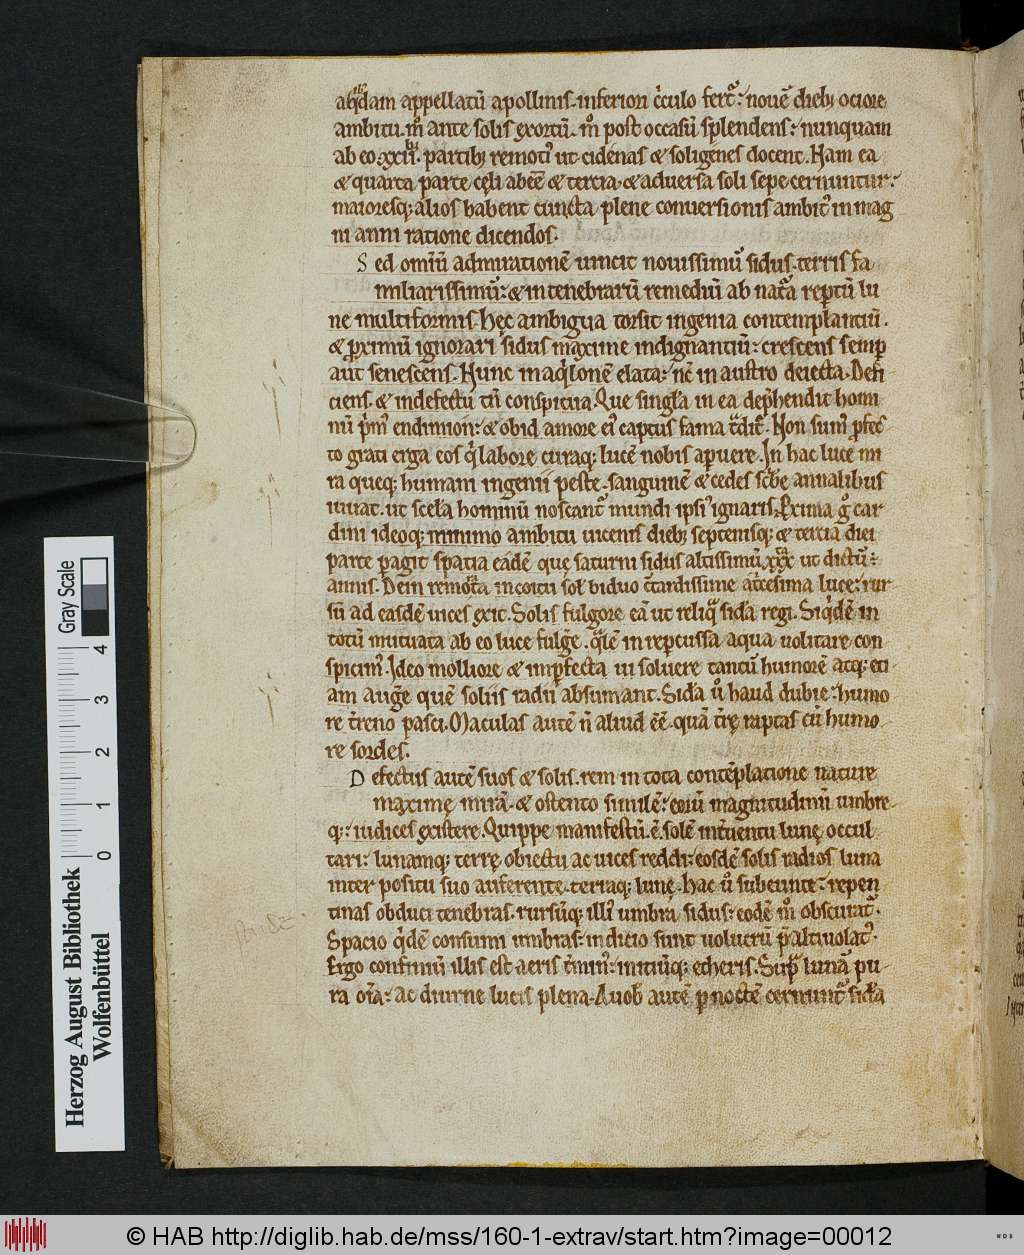 abq̇dam appellatū apollinis. inferiori c̓culo fert᷒: nouē dieb; ociore
ambitu. m̊ ante solis exortū. m̊ post occasū splendens: nunquam
ab eo. xxii. partib; remoti᷒ ut cidenas & soligenes docent. Nam ea
& quarta parte cęli abeē & tercia. & aduersa soli sepe cernuntur:
maioresq; alios habent cuncta plene conuersionis ambit᷒ in mag
ni anni ratione dicendos.
Sed omiū admirationē uincit nouissimū sidus. terris fa
miliarissimū: & in tenebrarū remediū ab nat᷒a rep̱tū lu
ne multiformis. hęc ambigua torsit ingenia contemplantiū.
& p̱ximū ignorari sidus maxime indignantiū: crescens semp̱
aut senescens. Nunc in aq̇lonē elata: nc̄ in austro deiecta. Defi
ciens. & in defectu tū conspicua. Que singl̓a in ea dep̱hendit homi
nū p̓m᷒ endimion: & obid amore ei᷒ captus fama t᷒dit᷒. Non sum᷒ p̱fec
to grati erga eos q̇ labore curaq; lucē nobis apuere. In hac luce mi
ra queq; humani ingenii peste. sanguinē & cedes sc̓be annalibus
iuuat. ut scel̓a hominū noscant᷒ mundi ipsi᷒ ignaris. Exima g̊ car
dini ideoq; minimo ambitu uicenis dieb; septemsq; & tercia diei
parte pagit spatia eadē que saturni sidus altissimū xxx ut dictū:
annis. Dein remota in coitu sol̓ biduo c̄ tardissime atcesima luce: rur
sū ad easdē uices exit. Solis fulgore eā ut reliq̇ sid̓a regi. Siq̇dē in
totū mutuata ab eo luce fulg̓e. q̓lē in rep̱cussa aqua uolitare con
spicim᷒. Ideo molliore & imp̱fecta ui soluere tantū humorē atq; eti
am aug̓e quē solis radii absumant. Sid̓a ů haud dubie: humo
re t̓reno pasci. Maculas autē n̄ aliud eē. quā t̓rę raptas cū humo
re sordes.
Defectus autē suos & solis. rem in tota contēplatione nature
maxime mirā. & ostento similē: eorū magnitudinū umbre
q;: iudices existere. Quippe manifestū. ē. solē int̓uentu lunę occul
tari: lunamq; terrę obiectu ac uices reddi: eosdē solis radios luna
inter positu suo auferente. terraq; lunę. hac ů subeunte: repen
tinas obduci tenebras. rursūq; illi᷒ umbra sidus: eodē m̊ obscurat᷒.
Spacio q̇dē consumi umbras: indicio sunt uolucrū p̱altiuolat᷒.
Ergo confiniū illis est aeris t̓min᷒: initiūq; etheris. Sup̱ lunā pu
ra om̓a: ac diurne lucis plena. A uob᷒ autē p̱ noctē cernunt᷒ sid̓a
Herzog August Bibliothek
Wolfenbüttel
Gray Scale
0 1 2 3 4
© HAB http://diglib.hab.de/mss/160-1-extrav/start.htm?image=00012